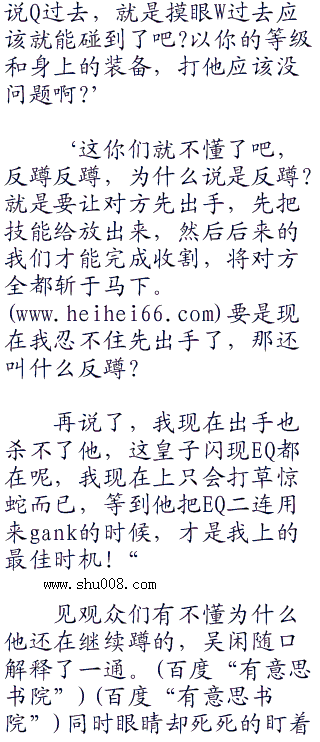 说Q过去，就是摸眼W过去应
该就能碰到了吧?以你的等级
和身上的装备，打他应该没
问题啊?’
‘这你们就不懂了吧，
反蹲反蹲，为什么说是反蹲?
就是要让对方先出手，先把
技能给放出来，然后后来的
我们才能完成收割，将对方
全都斩于马下。
(www.heihei66.com)要是现
在我忍不住先出手了，那还
叫什么反蹲?
再说了，我现在出手也
杀不了他，这皇子闪现EQ都
在呢，我现在上只会打草惊
蛇而已，等到他把EQ二连用
来gank的时候，才是我上的
最佳时机！“
www.shu008.com
见观众们有不懂为什么
他还在继续蹲的，吴闲随口
解释了一通。(百度“有意思
书院”)(百度“有意思书
院”)同时眼睛却死死的盯着